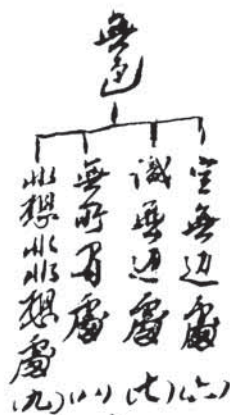 無色
空無边處(六)
識無边處(七)
無所有處(八)
非想非非想處(九)